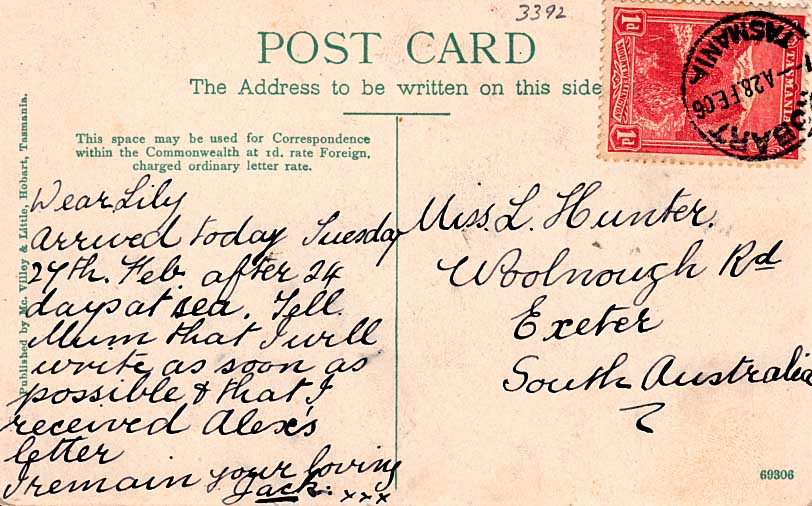 3392
POST CARD
The Address to be written on this side
This space may be used for Correspondence
within the Commonwealth at 1d. rate Foreign,
charged ordinary letter rate.
Published by Mc. Villey & Little, Hobart, Tasmania.
Dear Lily
Arrived today Tuesday
27th. Feb after 24
days at sea. Tell
Mum that I will
write as soon as
possible & that I
received Alex's
letter
I remain your loving
Jack. xxx
Miss. L. Hunter.
Woolnough Rd
Exeter
South Australia
1d
TASMANIA
1d
HOBART
A28 FE 06
TASMANIA
69306